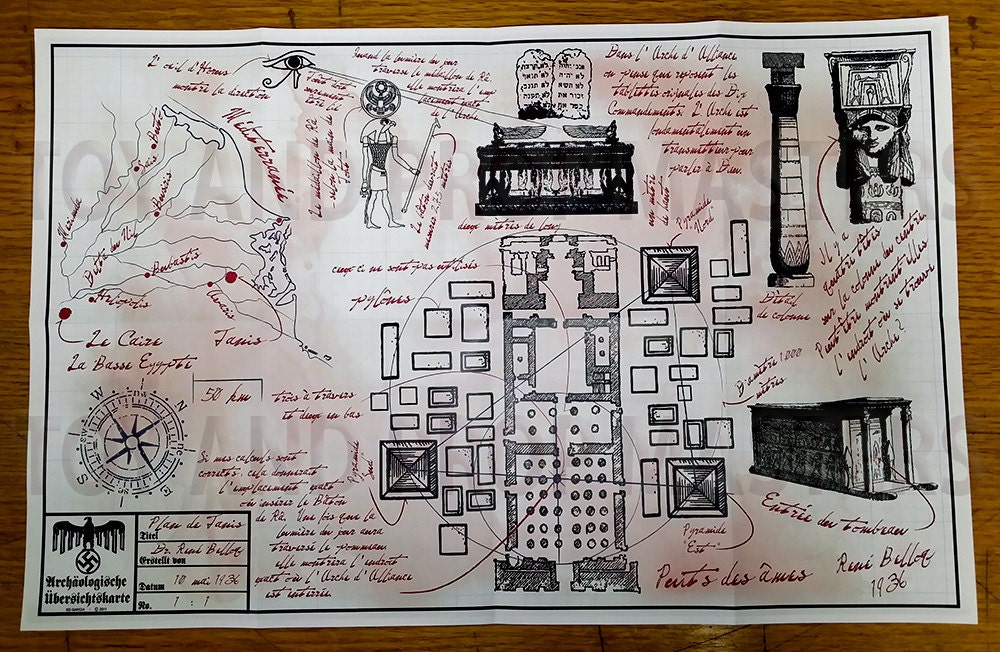 L'œil d'Horus
montre la direction
Quand la lumière du jour
traverse le médaillon de Râ,
elle montrera l'em
placement exact
de l'Arche
Le médaillon de Râ
Le bâton devrait
mesurer
deux mètres de long
un mètre
de haut
Dans l'Arche d'Alliance
on pense que reposent les
tablettes originales des Dix
Commandements. L'Arche est
fondamentalement un
transmetteur pour
parler à Dieu.
Méditerranée
Buto
Sais
Busiris
Delta du Nil
Bubastis
Heliopolis
Le Caire
Tanis
La Basse Egypte
50 km
ceux ci ne sont pas utilisés
pylônes
Pyramide
Nord
Détail
de colonne
Il y a
quatre côtés
sur la colonne du centre
Peut être montrent elles
l'endroit où se trouve
l'Arche?
Diamètre 1.000
mètres
trois à travers
et deux en bas
Si mes calculs sont
corrects, cela donnerait
l'emplacement exact
où insérer le Bâton
de Râ. Une fois que la
lumière du jour aura
traversé le pommeau
elle montrera l'endroit
exact où l'Arche d'Alliance
est enterrée.
Pyramide
Sud
Pyramide
Est
Entrée du tombeau
Puits des âmes
René Belloq
1936
N
E
S
W
Archäologische
Übersichtskarte
Plan de Tanis
Titel
Dr. René Belloq
Erstellt von
Datum 10 mai 1936
No. 1 : 1
TOY AND PROP MASTERS
TOY AND PROP MASTERS